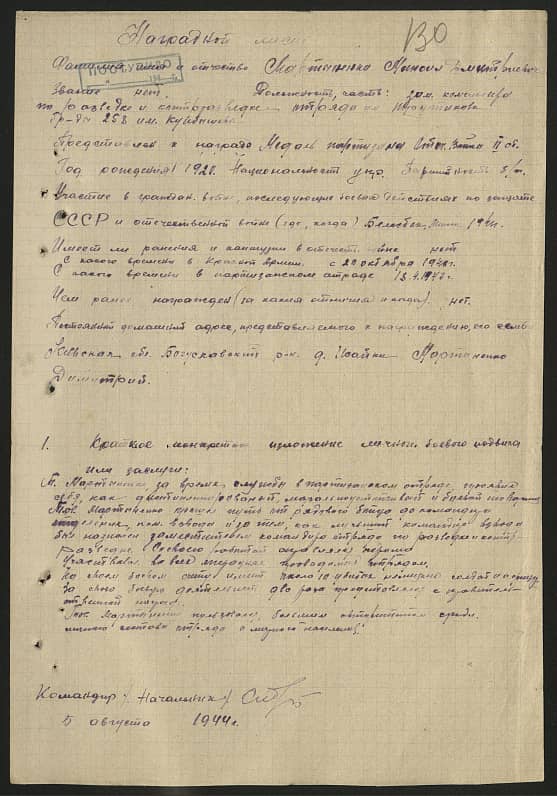 Наградной лист
ПОСТУПИЛО
Фамилия имя и отчество Мартыненко Михаил Дмитриевич
Звание нет. Должность, часть: зам. командира
по разведке и контрразведке отряда
Бр-да 258 им. Куйбышева
Представлен к награде Медаль партизана Отеч. Войны II ст.
Год рождения 1920. Национальность укр. Партийность б/п.
Участие в граждан. войне, последующие боевые действиях по защите
СССР и отечественной войне (где, когда) 194
Имеет ли ранения и контузии в отечест. войне нет.
С какого времени в Красной Армии. с 22 октября 1940г.
С какого времени в партизанском отряде 13.4.194
Чем ранее награжден (за какия отличия и когда). нет.
Постоянный домашний адрес, представляемого к награждению, его семьи
Киевская обл. Богуславский р-н. д. Исайки Мартыненко
Димитрий.
1. Краткое конкретное изложение личного боевого подвига
или заслуги:
Т. Мартыненко за время службы в партизанском отряде, проявил
себя, как дисциплинированый,
Тов. Мартыненко прошел путь от рядового бойца до командира
отделения, ком. взвода и за тем, как лучший командир взвода
был назначен заместителем командира отряда по разведке и контр-
разведке. Со своей работой справлялся хорошо
Участвовал во всех операциях проводимых отрядом.
На своем боевом счету имеет около 10 убитых немецких солдат
За свою боевую деятельность два раза представлялся к правитель-
ственной награде.
Тов. Мартыненко пользовался большим авторитетом среди
личного состава отряда и мирного населения.
Командир / Начальник /
5 августа 1944г.